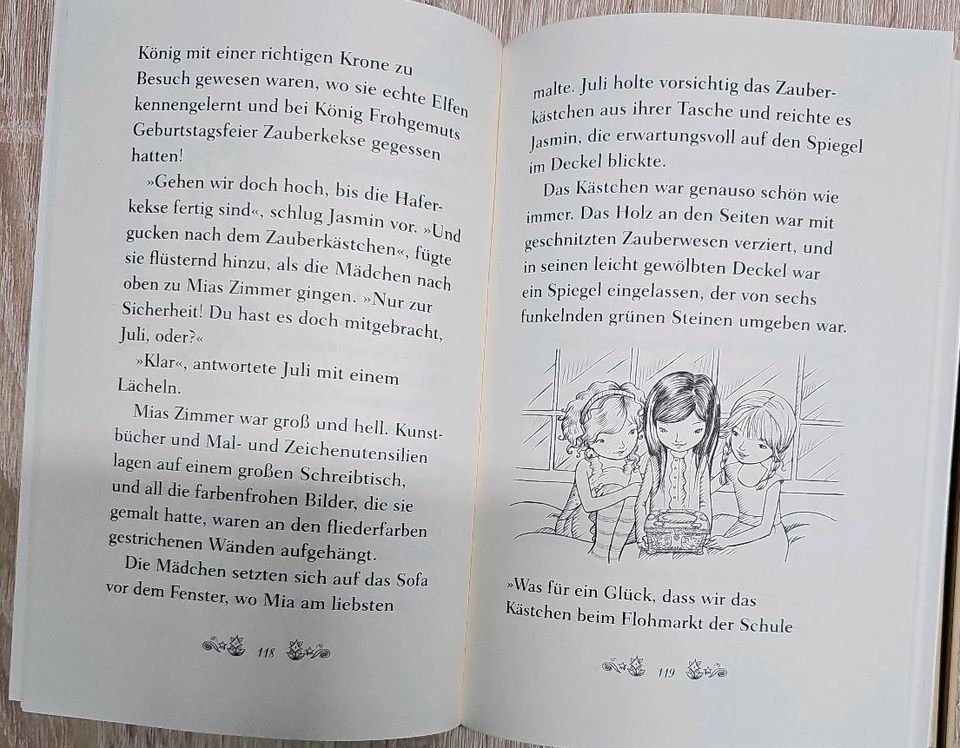 König mit einer richtigen Krone zu
Besuch gewesen waren, wo sie echte Elfen
kennengelernt und bei König Frohgemuts
Geburtstagsfeier Zauberkekse gegessen
hatten!
»Gehen wir doch hoch, bis die Hafer-
kekse fertig sind«, schlug Jasmin vor. »Und
gucken nach dem Zauberkästchen«, fügte
sie flüsternd hinzu, als die Mädchen nach
oben zu Mias Zimmer gingen. »Nur zur
Sicherheit! Du hast es doch mitgebracht,
Juli, oder?«
»Klar«, antwortete Juli mit einem
Lächeln.
Mias Zimmer war groß und hell. Kunst-
bücher und Mal- und Zeichenutensilien
lagen auf einem großen Schreibtisch,
und all die farbenfrohen Bilder, die sie
gemalt hatte, waren an den fliederfarben
gestrichenen Wänden aufgehängt.
Die Mädchen setzten sich auf das Sofa
vor dem Fenster, wo Mia am liebsten
118
malte. Juli holte vorsichtig das Zauber-
kästchen aus ihrer Tasche und reichte es
Jasmin, die erwartungsvoll auf den Spiegel
im Deckel blickte.
Das Kästchen war genauso schön wie
immer. Das Holz an den Seiten war mit
geschnitzten Zauberwesen verziert, und
in seinen leicht gewölbten Deckel war
ein Spiegel eingelassen, der von sechs
funkelnden grünen Steinen umgeben war.
»Was für ein Glück, dass wir das
Kästchen beim Flohmarkt der Schule
119